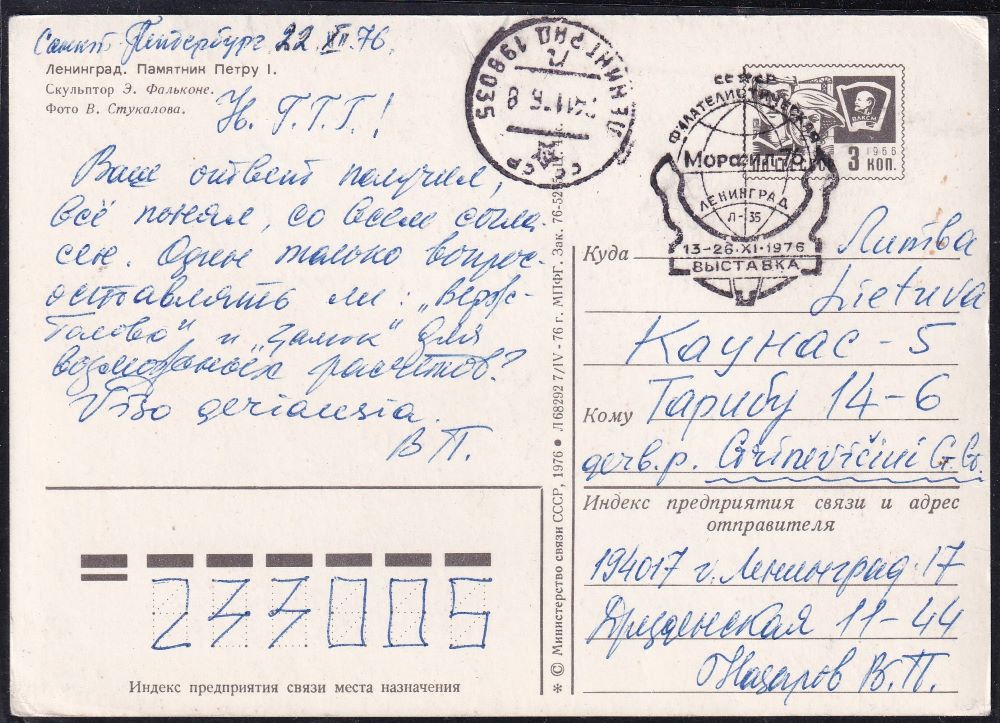 Санкт Петербург 22 XI 76.
Ленинград. Памятник Петру I.
Скульптор Э. Фальконе.
Фото В. Стукалова.
Ув. Г.Г.Г!
Ваше ответ получил,
всё понял, со всем согла-
сен. Один только вопрос-
оставлять ли: „Верж-
болово" и „Замок" для
возможных расчетов?
Viso geriausia.
В П.
Индекс предприятия связи места назначения
233005
© Министерство связи СССР, 1976 • Л 68292 7/IV - 76 г. МПФГ. Зак. 76-52
ЛЕНИНГРАД 198035
СССР
СССР
ФИЛАТЕЛИСТИЧЕСКАЯ
Морфил-76
ЛЕНИНГРАД
Л-35
13-26·XI·1976
ВЫСТАВКА
ВЛКСМ
1966
3 КОП.
ПОЧТА СССР
Куда Литва
Lietuva
Каунас - 5
Кому Тарибу 14-6
дочв.р. Grinevičiui G.G.
Индекс предприятия связи и адрес
отправителя
194017 г. Ленинград-17
Дрезденская 11-44
Назаров В.П.